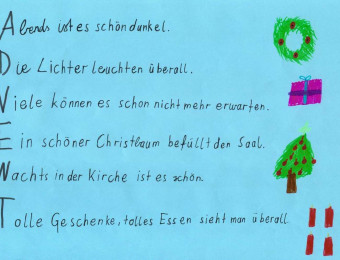 Abends ist es schön dunkel.
Die Lichter leuchten überall.
Viele können es schon nicht mehr erwarten.
Ein schöner Christbaum befüllt den Saal.
Nachts in der Kirche ist es schön.
Tolle Geschenke, tolles Essen sieht man überall